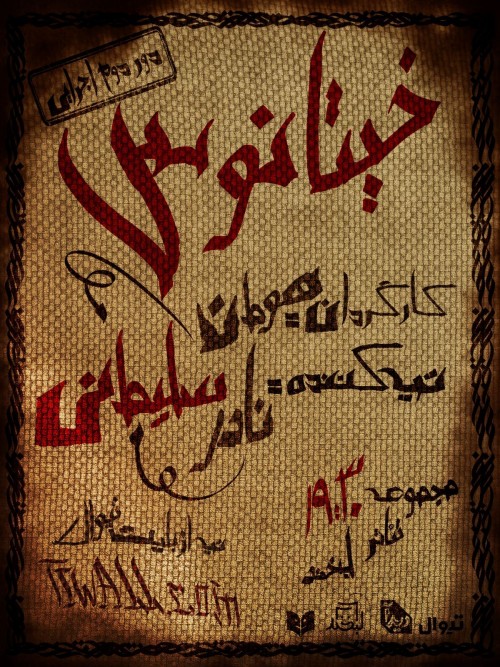 دور دوم اجرایی
خیتانوس
کارگردان: پیمان
تهیه‌کننده: نادر سلیمانی
مجموعه
تئاتر لبخند
۱۹:۳۰
تیوال
TIWALL.COM
تیوال